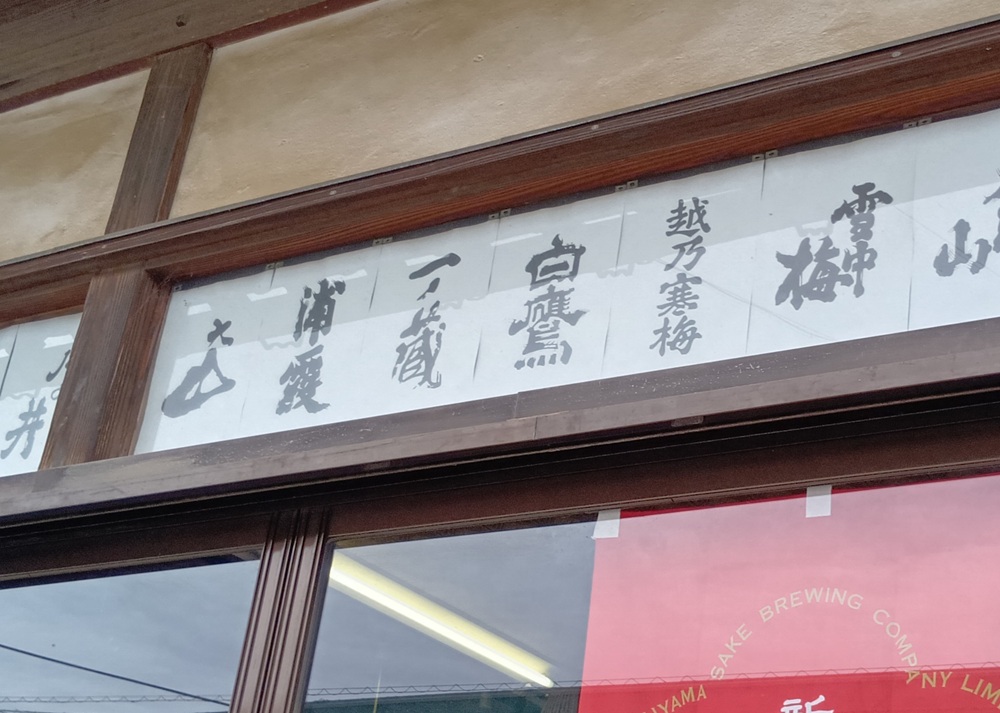 井
浦霞
一ノ蔵
白鷹
越乃寒梅
雪中梅
山
YAMA SAKE BREWING COMPANY LIM
新